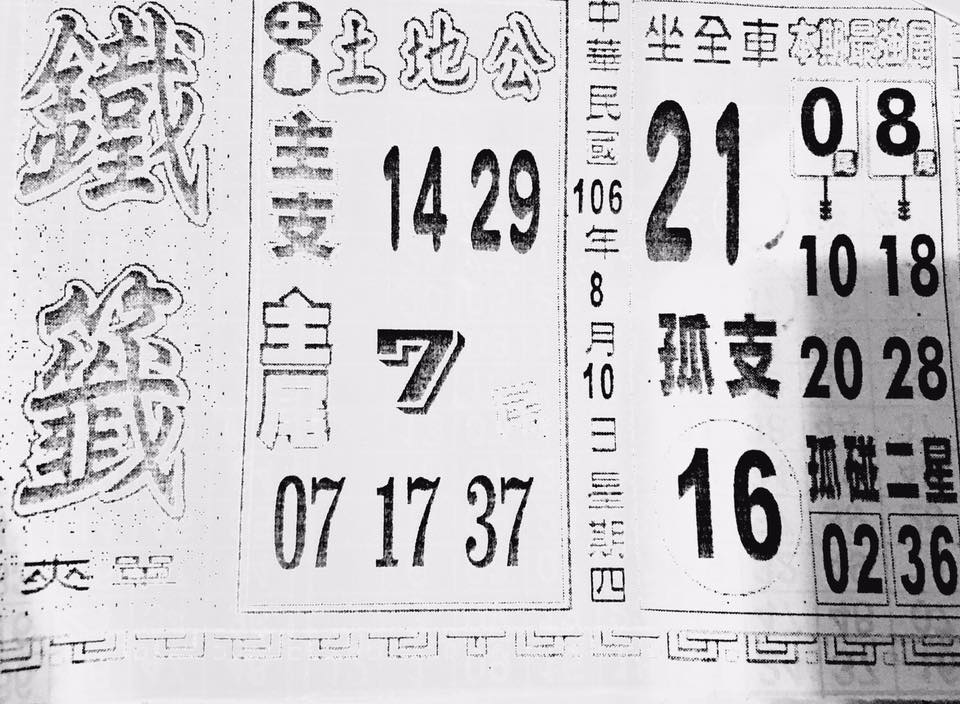 鐵籤
土地公
主支
14 29
主尾
7
07 17 37
中華民國106年8月10日星期四
坐全車
21
孤支
16
本期最強尾
0尾 8尾
10 18
20 28
孤碰二星
02 36